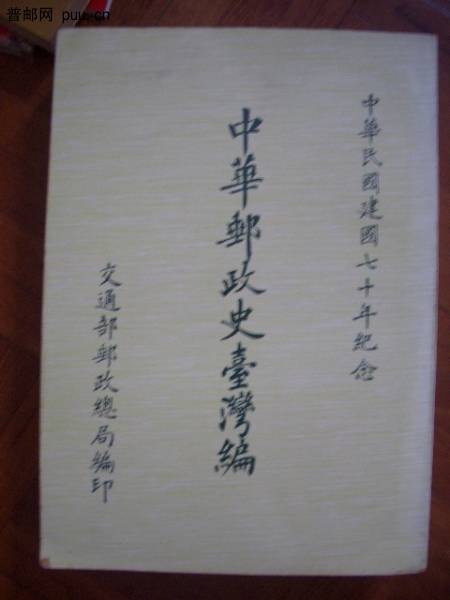 普邮网 puu.cn
中華民國建國七十年紀念
中華郵政史臺灣編
交通部郵政總局編印